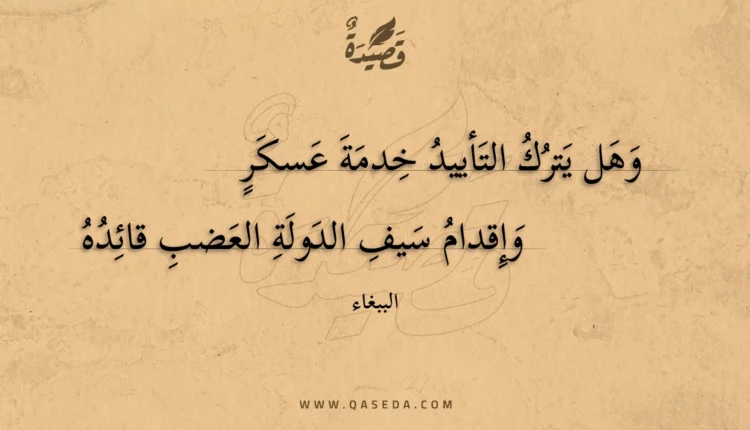 قَصِيْدَةٌ
وَهَل يَترُكُ التَأييدُ خِدمَةَ عَسكَرٍ
وَإِقدامُ سَيفِ الدَولَةِ العَضبِ قائِدُهُ
الببغاء
WWW.QASEDA.COM